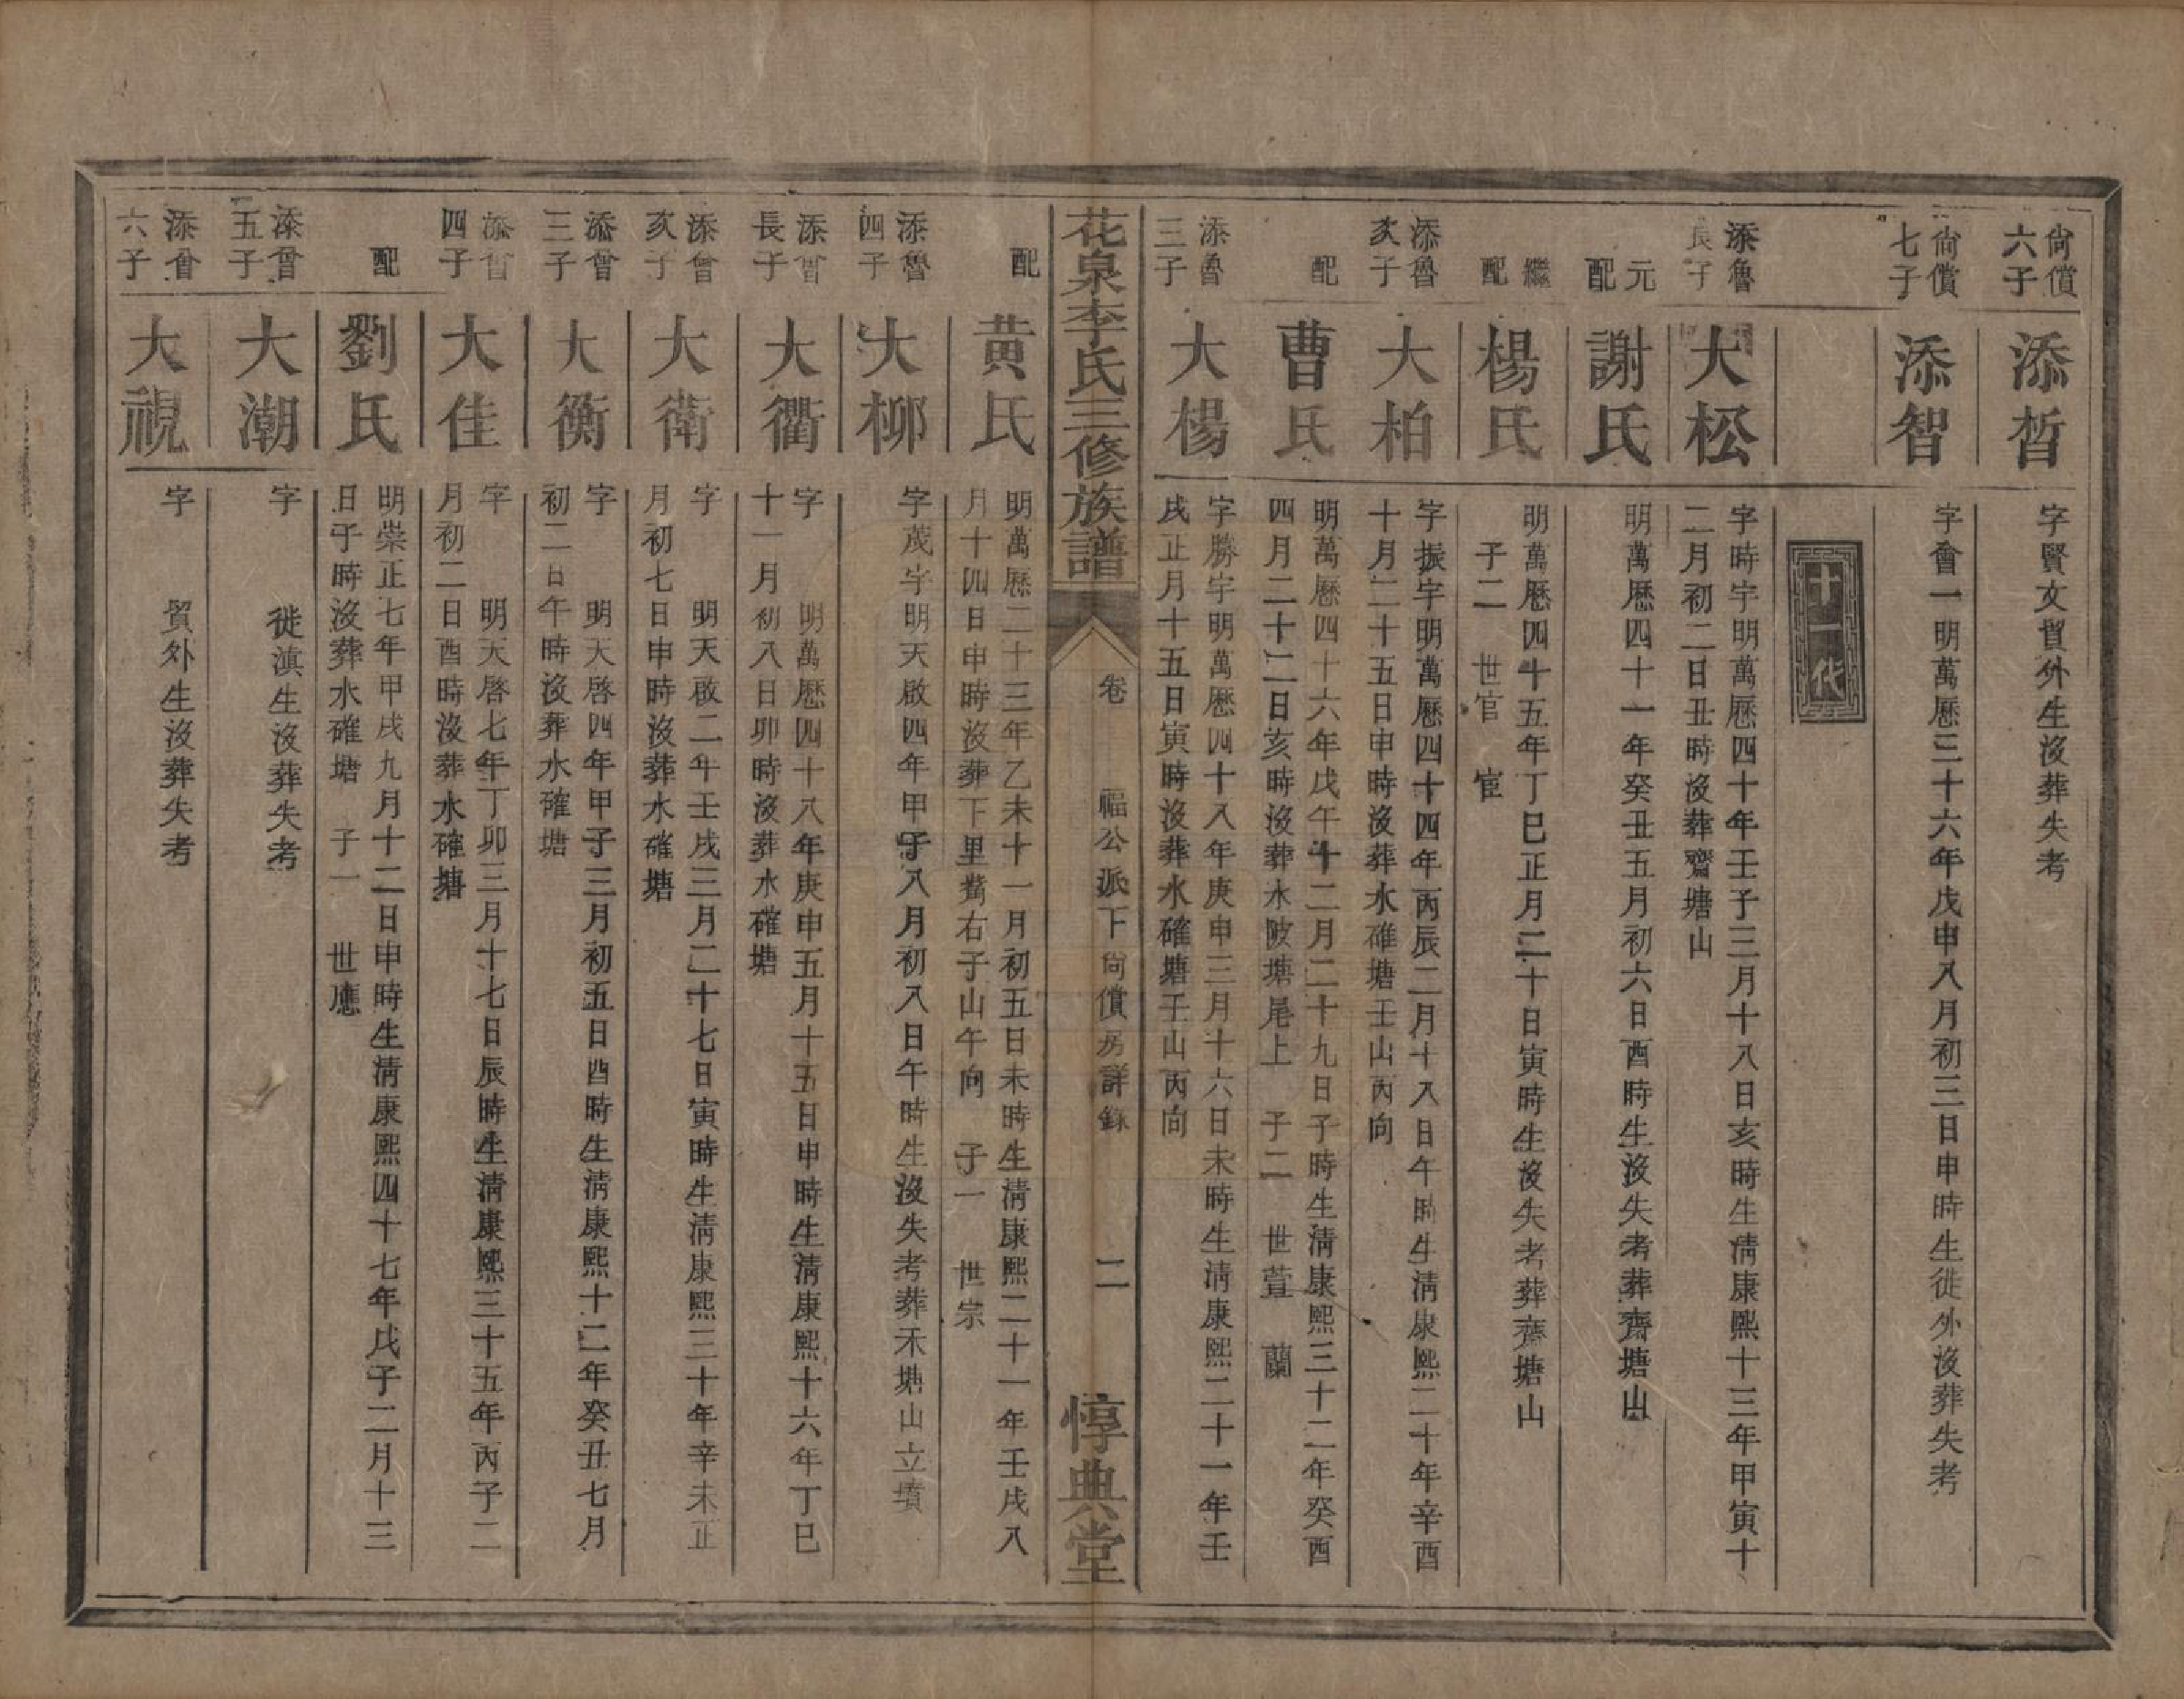 尙償
六子
添晢
字賢文貿外生沒葬失考
尙償
七子
添智
字會一明萬厯三十六年戊申八月初三日申時生徙外沒葬失考
十一代
添魯
長子
大松
字時宇明萬厯四十年壬子三月十八日亥時生淸康熙十三年甲寅十
二月初二日丑時沒葬齋塘山
元
配
謝氏
明萬厯四十一年癸丑五月初六日酉時生沒失考葬齋塘山
繼
配
楊氏
明萬厯四十五年丁巳正月二十日寅時生沒失考葬齋塘山
子二 世官 宦
添魯
次子
大柏
字振宇明萬厯四十四年丙辰二月十八日午時生淸康熙二十年辛酉
十月二十五日申時沒葬水確塘壬山丙向
配
曹氏
明萬厯四十六年戊午十二月二十九日子時生淸康熙三十二年癸酉
四月二十二日亥時沒葬水陂塘尾上 子二 世萱 蘭
添魯
三子
大楊
字勝宇明萬厯四十八年庚申三月十六日未時生淸康熙二十一年壬
戌正月十五日寅時沒葬水確塘壬山丙向
花泉李氏三修族譜
卷 福公派下尙償房詳錄
二
惇典堂
配
黄氏
明萬厯二十三年乙未十一月初五日未時生淸康熙二十一年壬戌八
月十四日申時沒葬下里觜右子山午向 子一 世宗
添魯
四子
大柳
字茂宇明天啟四年甲子八月初八日午時生沒失考葬禾塘山立墳
添曾
長子
大衢
字 明萬厯四十八年庚申五月十五日申時生淸康熙十六年丁巳
十一月初八日卯時沒葬水確塘
添曾
次子
大衛
字 明天啟二年壬戌三月二十七日寅時生淸康熙三十年辛未正
月初七日申時沒葬水確塘
添曾
三子
大衡
字 明天啓四年甲子三月初五日酉時生淸康熙十二年癸丑七月
初二日午時沒葬水確塘
添曾
四子
大佳
字 明天啓七年丁卯三月十七日辰時生淸康熙三十五年丙子二
月初二日酉時沒葬水確塘
配
劉氏
明崇正七年甲戌九月十二日申時生淸康熙四十七年戊子二月十三
日子時沒葬水確塘 子一 世應
添曾
五子
大潮
字 徙滇生沒葬失考
添曾
六子
大視
字 貿外生沒葬失考